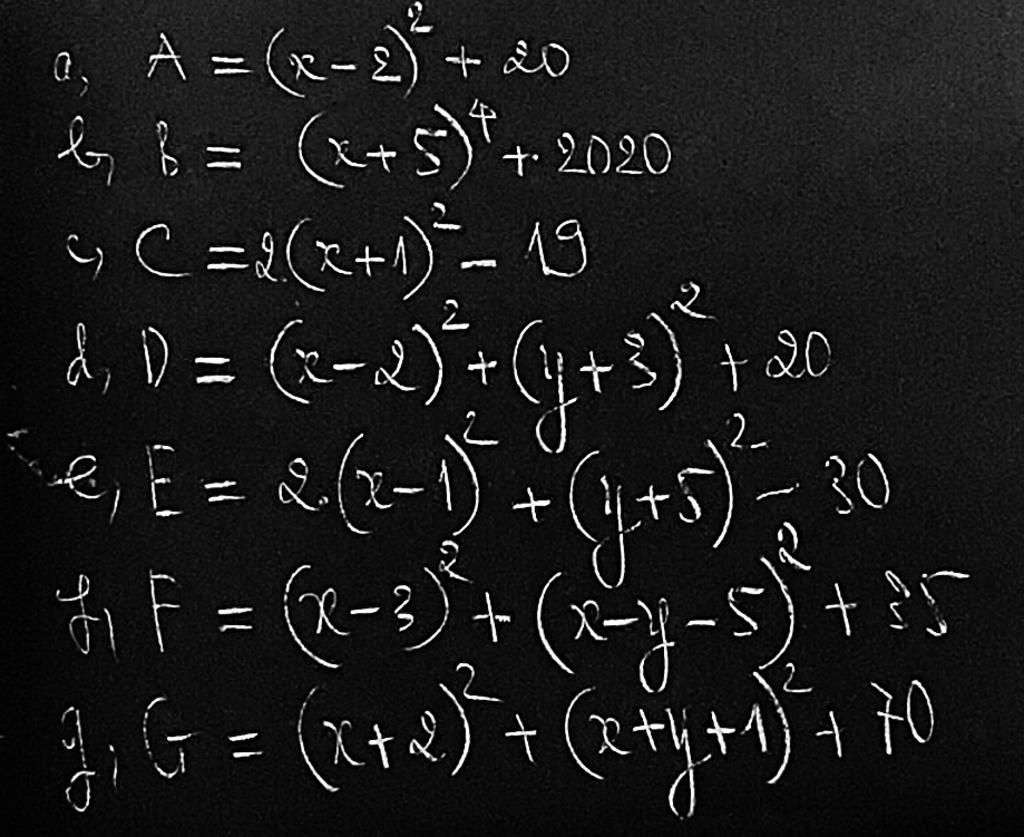 a, A = (x-2)² + 20
b, B = (x+5)⁴ + 2020
c, C = 2(x+1)² - 19
d, D = (x-2)² + (y+3)² + 20
e, E = 2.(x-1)² + (y+5)² - 30
f, F = (x-3)² + (x-y-5)² + 35
g, G = (x+2)² + (x+y+1)² + 70